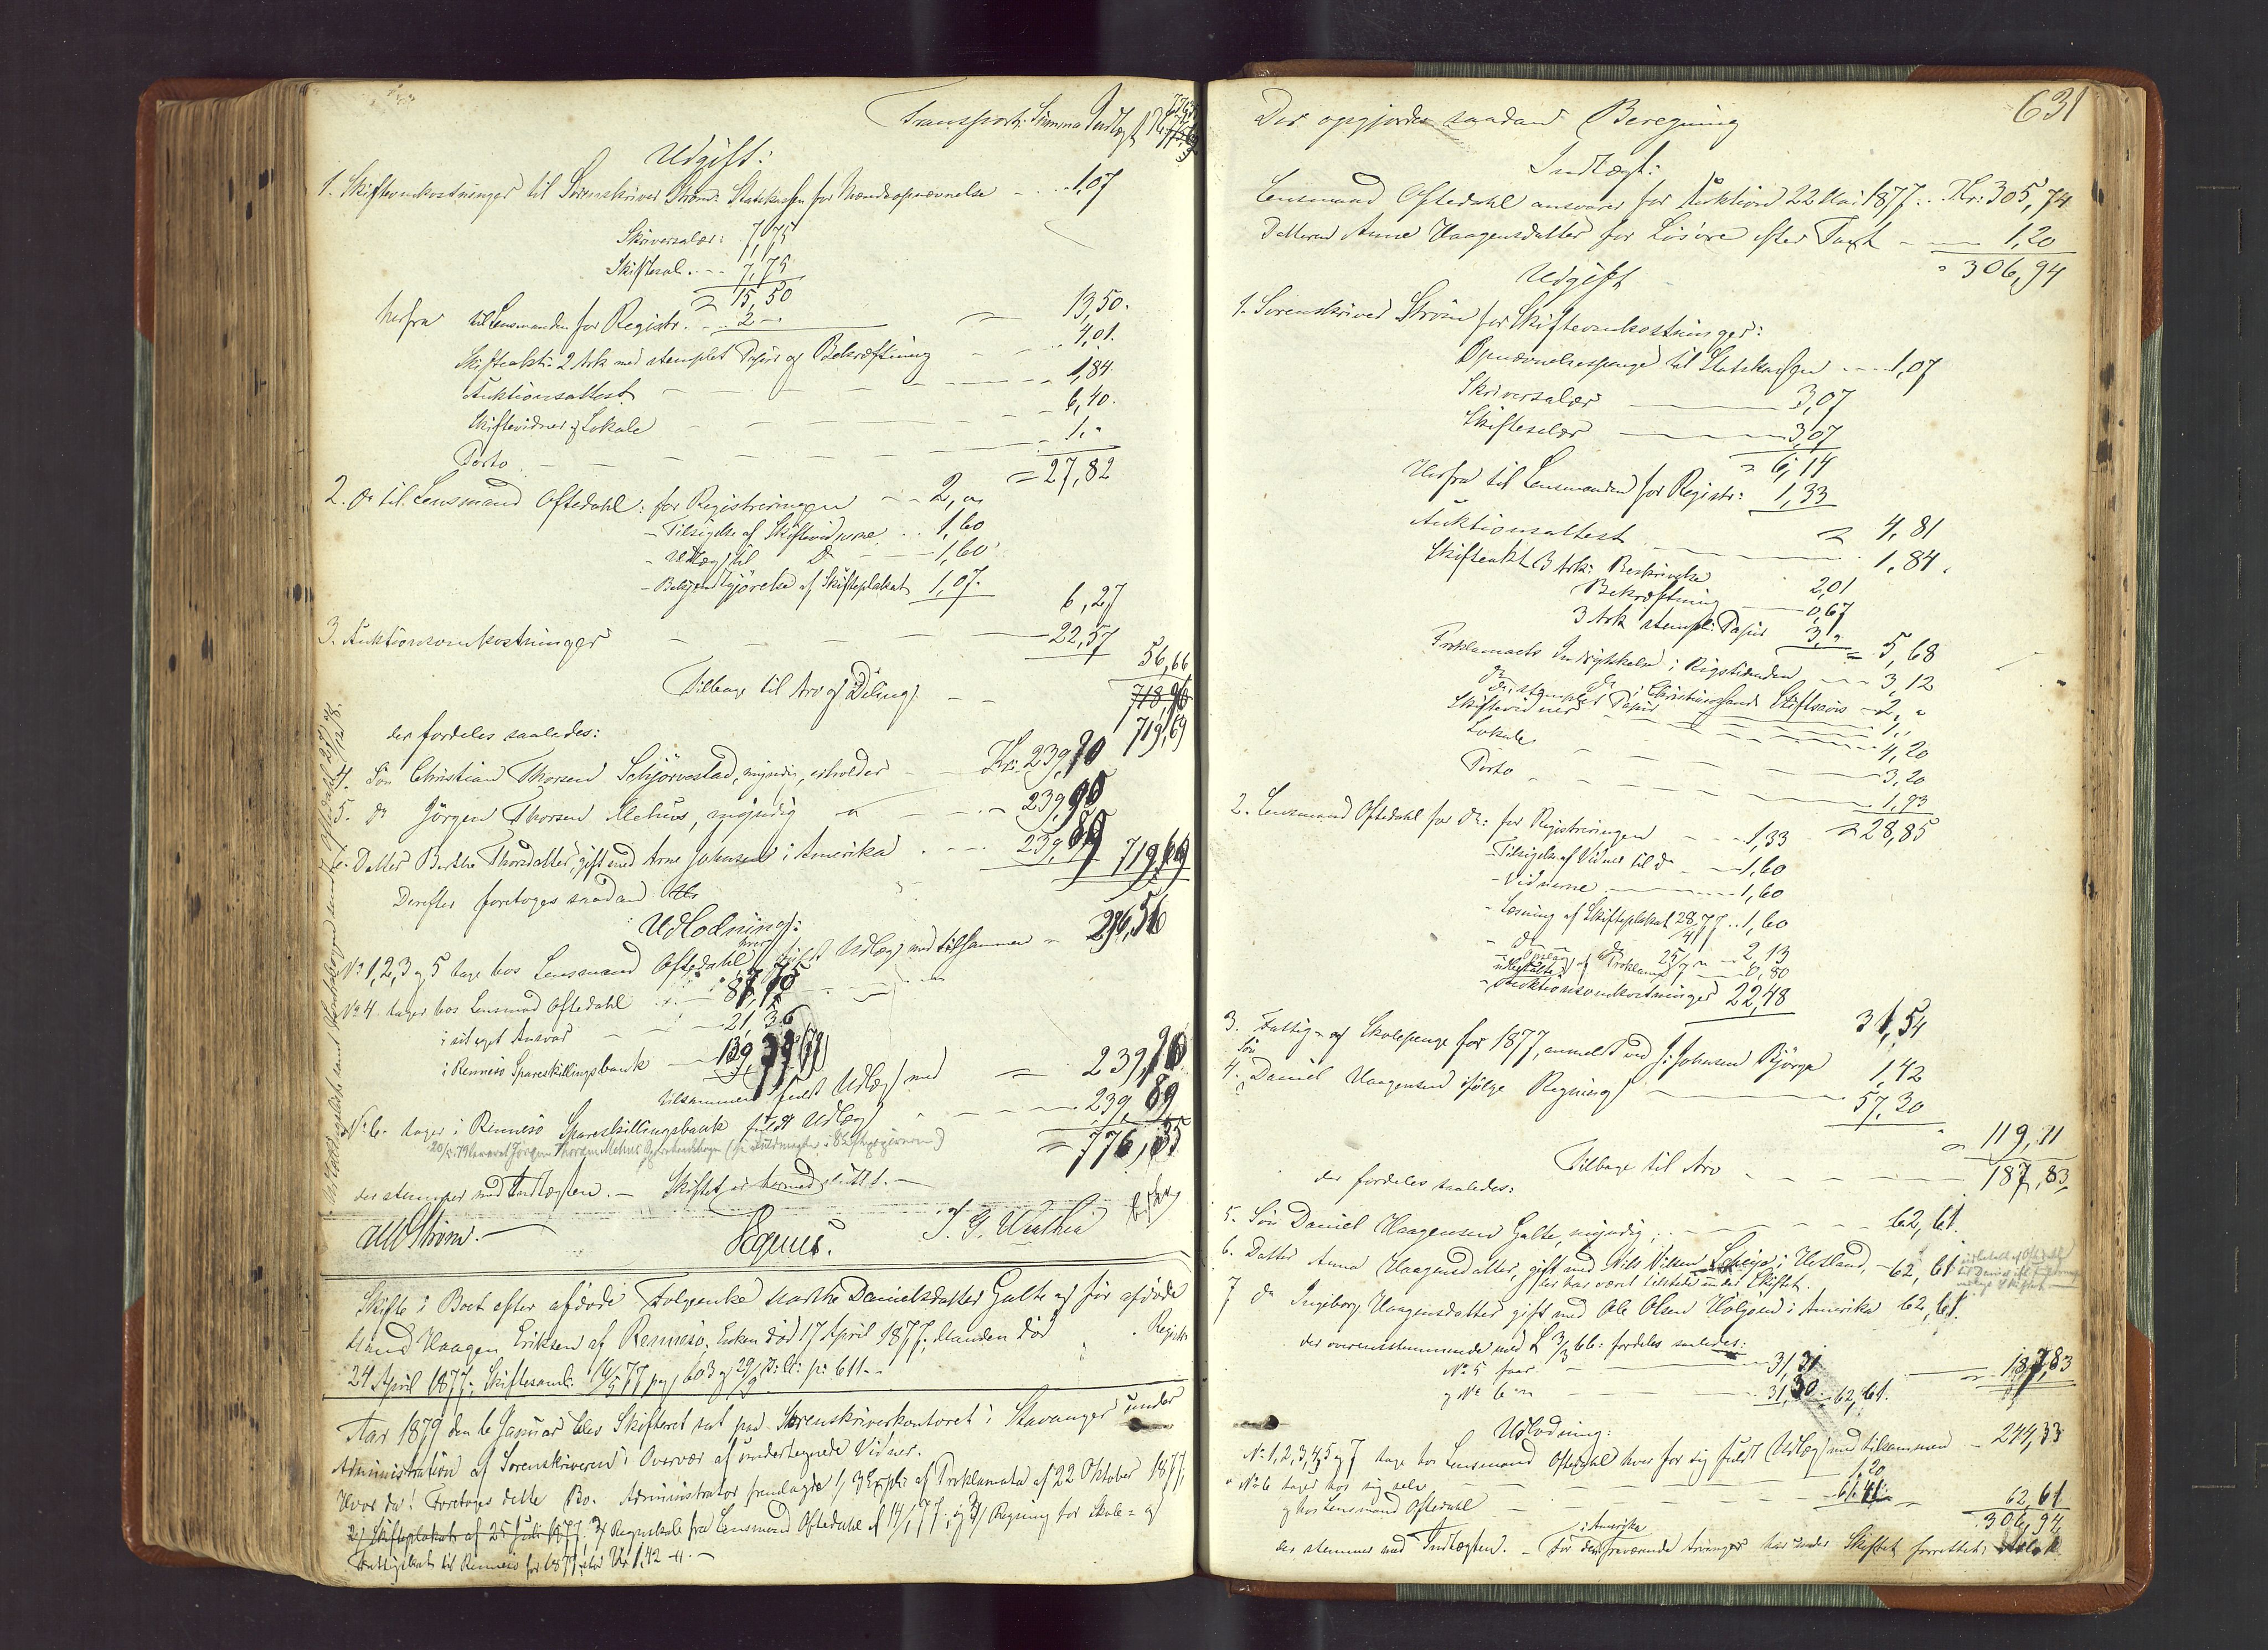 Transport: Summa Indtægt Kr.
Udgift:
1. Skifteomkostninger til Sorenskriver Strøm: Statskassen for Mændsopnævnelse - - 1,07
Skriversalær: 7,75
Skiftesal. - - 7,75
= 15,50
herfra til Lensmanden for Registr. - - 2 - = 13,50.
Skifteakt: 2 Ark med stemplet Papir og Bekræftning - - 4,01.
Auktionsattest - - 1,84.
Skiftevidner & Lokale - - 6,40.
Porto - - 1,"
= 27,82
2. do til Lensmand Oftedahl: for Registreringen - - 2,"
- Tilsigelse af Skiftevidnerne - - 1,60
- Udlæg til Do - - 1,60
- Bekjendtgjørelse af Skifteplakat 1,07.
6,27
3. Auktionsomkostninger - - 22,57
56,66
Tilbage til Arv og Deling - - 718,96
719,69
der fordeles saaledes:
4. Søn Christian Thorsen Schjørvestad, myndig, erholder - - Kr. 239,90
5. do Jörgen Thorsen Mehus, myndig - - 239,90
6. Datter Berthe Thorsdatter, gift med Arne Johnsen i Amerika - - 239,89 719,69
Derefter foretoges saadan
Udlodning:
No 1, 2, 3 og 5 tage hos Lensmand Oftedahl hver fuldt Udlæg med tilsammen - 296,56
No 4 tager hos Lensmand Oftedahl - -
i sit eget Ansvar - - 21,36
i Rennesø Spareskillingsbank - -
tilsammen fuldt Udlæg med = 239,90
No 6 tager i Rennesø Spareskillingsbank fuldt Udlæg - - 239,89
= 776,35
der stemmer med Indtægten. - Skiftet er hermed sluttet. -
AWStrøm. -
Skifte i Boet efter afdøde Folgeenke Marthe Danielsdatter Galte og før afdøde
Mand Haagen Eriksen af Rennesø. Enken død 17 April 1877, Manden død
24 April 1877. Skiftesaml. 16/5 77 pag. 603 og 29/9 s: A: p: 611 - - Registr
Aar 1879 den 6 Januar blev Skifteret sat paa Sorenskriverkontoret i Stavanger under
Administration af Sorenskriveren i Overvær af undertegnede Vidner.
Hvor da: Foretoges dette Bo. Administrator fremlagde 1, 3 Expl: af Proklamata af 22 Oktober 1877,
2) Skifteplakat af 25 Juli 1877, 3) Regnskab fra Lensmand Oftedahl og Regning for Skole- og
Fattigskat til Rennesø for 1877 stor Kr 1.42. -
631
Der opgjordes saadan Beregning
Indtægt:
Lensmand Oftedahl ansvarer for Auktion 22 Mai 1877. - Kr: 305,74
Datteren Anne Haagensdatter for Løsøre efter Taxt - - 1,20
= 306,94
Udgift
1. Sorenskriver Strøm for Skifteomkostninger:
Opnævnelsespenge til Statskassen - - 1,07
Skriversalær - 3,07
Skiftesalær - 3,07
= 6,14
Herfra til Lensmanden for Registr: 1,33
= 4,81
Auktionsattest - - 1,84.
Skifteakt 3 Ark: Beskrivelse 2,01
Bekræftning - 0,67
3 Ark stempl. Papir 3," = 5,68
Proklamaets Indrykkelse i Rigstidenden - - 3,12
do do i Christianssands Stiftsavis - 2,"
do, stemplet Papir - - 1,"
Skiftevidner - - 4,20
Lokale - - 3,20
Porto - - 1,93
= 28,85
2. Lensmand Oftedahl for do: for Registreringen - - 1,33
- Tilsigelse af Vidner til do - - 1,60
- Vidnerne - - 1,60
- Læsning af Skifteplakat 28/4 77 - - 1,60
- do do 25/7 " - 2,13
- Opslag af Proklama - 0,80
- Auktionsomkostninger 22,48
31,54
3. Fattig- og Skolepenge for 1877, anmeldt ved J. Johnsen Bjørge 1,42
4. Søn Daniel Haagensen ifølge Regning - - 57,30
= 119,11
Tilbage til Arv - - 187,83
der fordeles saaledes:
5. Søn Daniel Haagensen Galte, myndig; - - 62,61.
6. Datter Anna Haagensdatter, gift med Nils Nilsen i Hetland, - 62,61
der har været tilstede under Skiftet.
7 do Ingeborg Haagensdatter gift med Ole Olsen i Amerika 62,61.
der overensstemmende med L 3/3 66: fordeles saaledes:
No 5 faar - - 31,31
og No 6 " - - 31,30 - 62,61.
= 187,83
Udlodning:
No 1, 2, 3, 4, 5 og 7 tage hos Lensmand Oftedahl hver for sig fuldt Udlæg med tilsammen - 244,33
" No 6 tager hos sig selv - - 1,20
og hos Lensmand Oftedahl - - 61,41 - 62,61
306,94
der stemmer med Indtægten. - For den i Amerika fraværende Arvinger har under Skiftet forrettet: